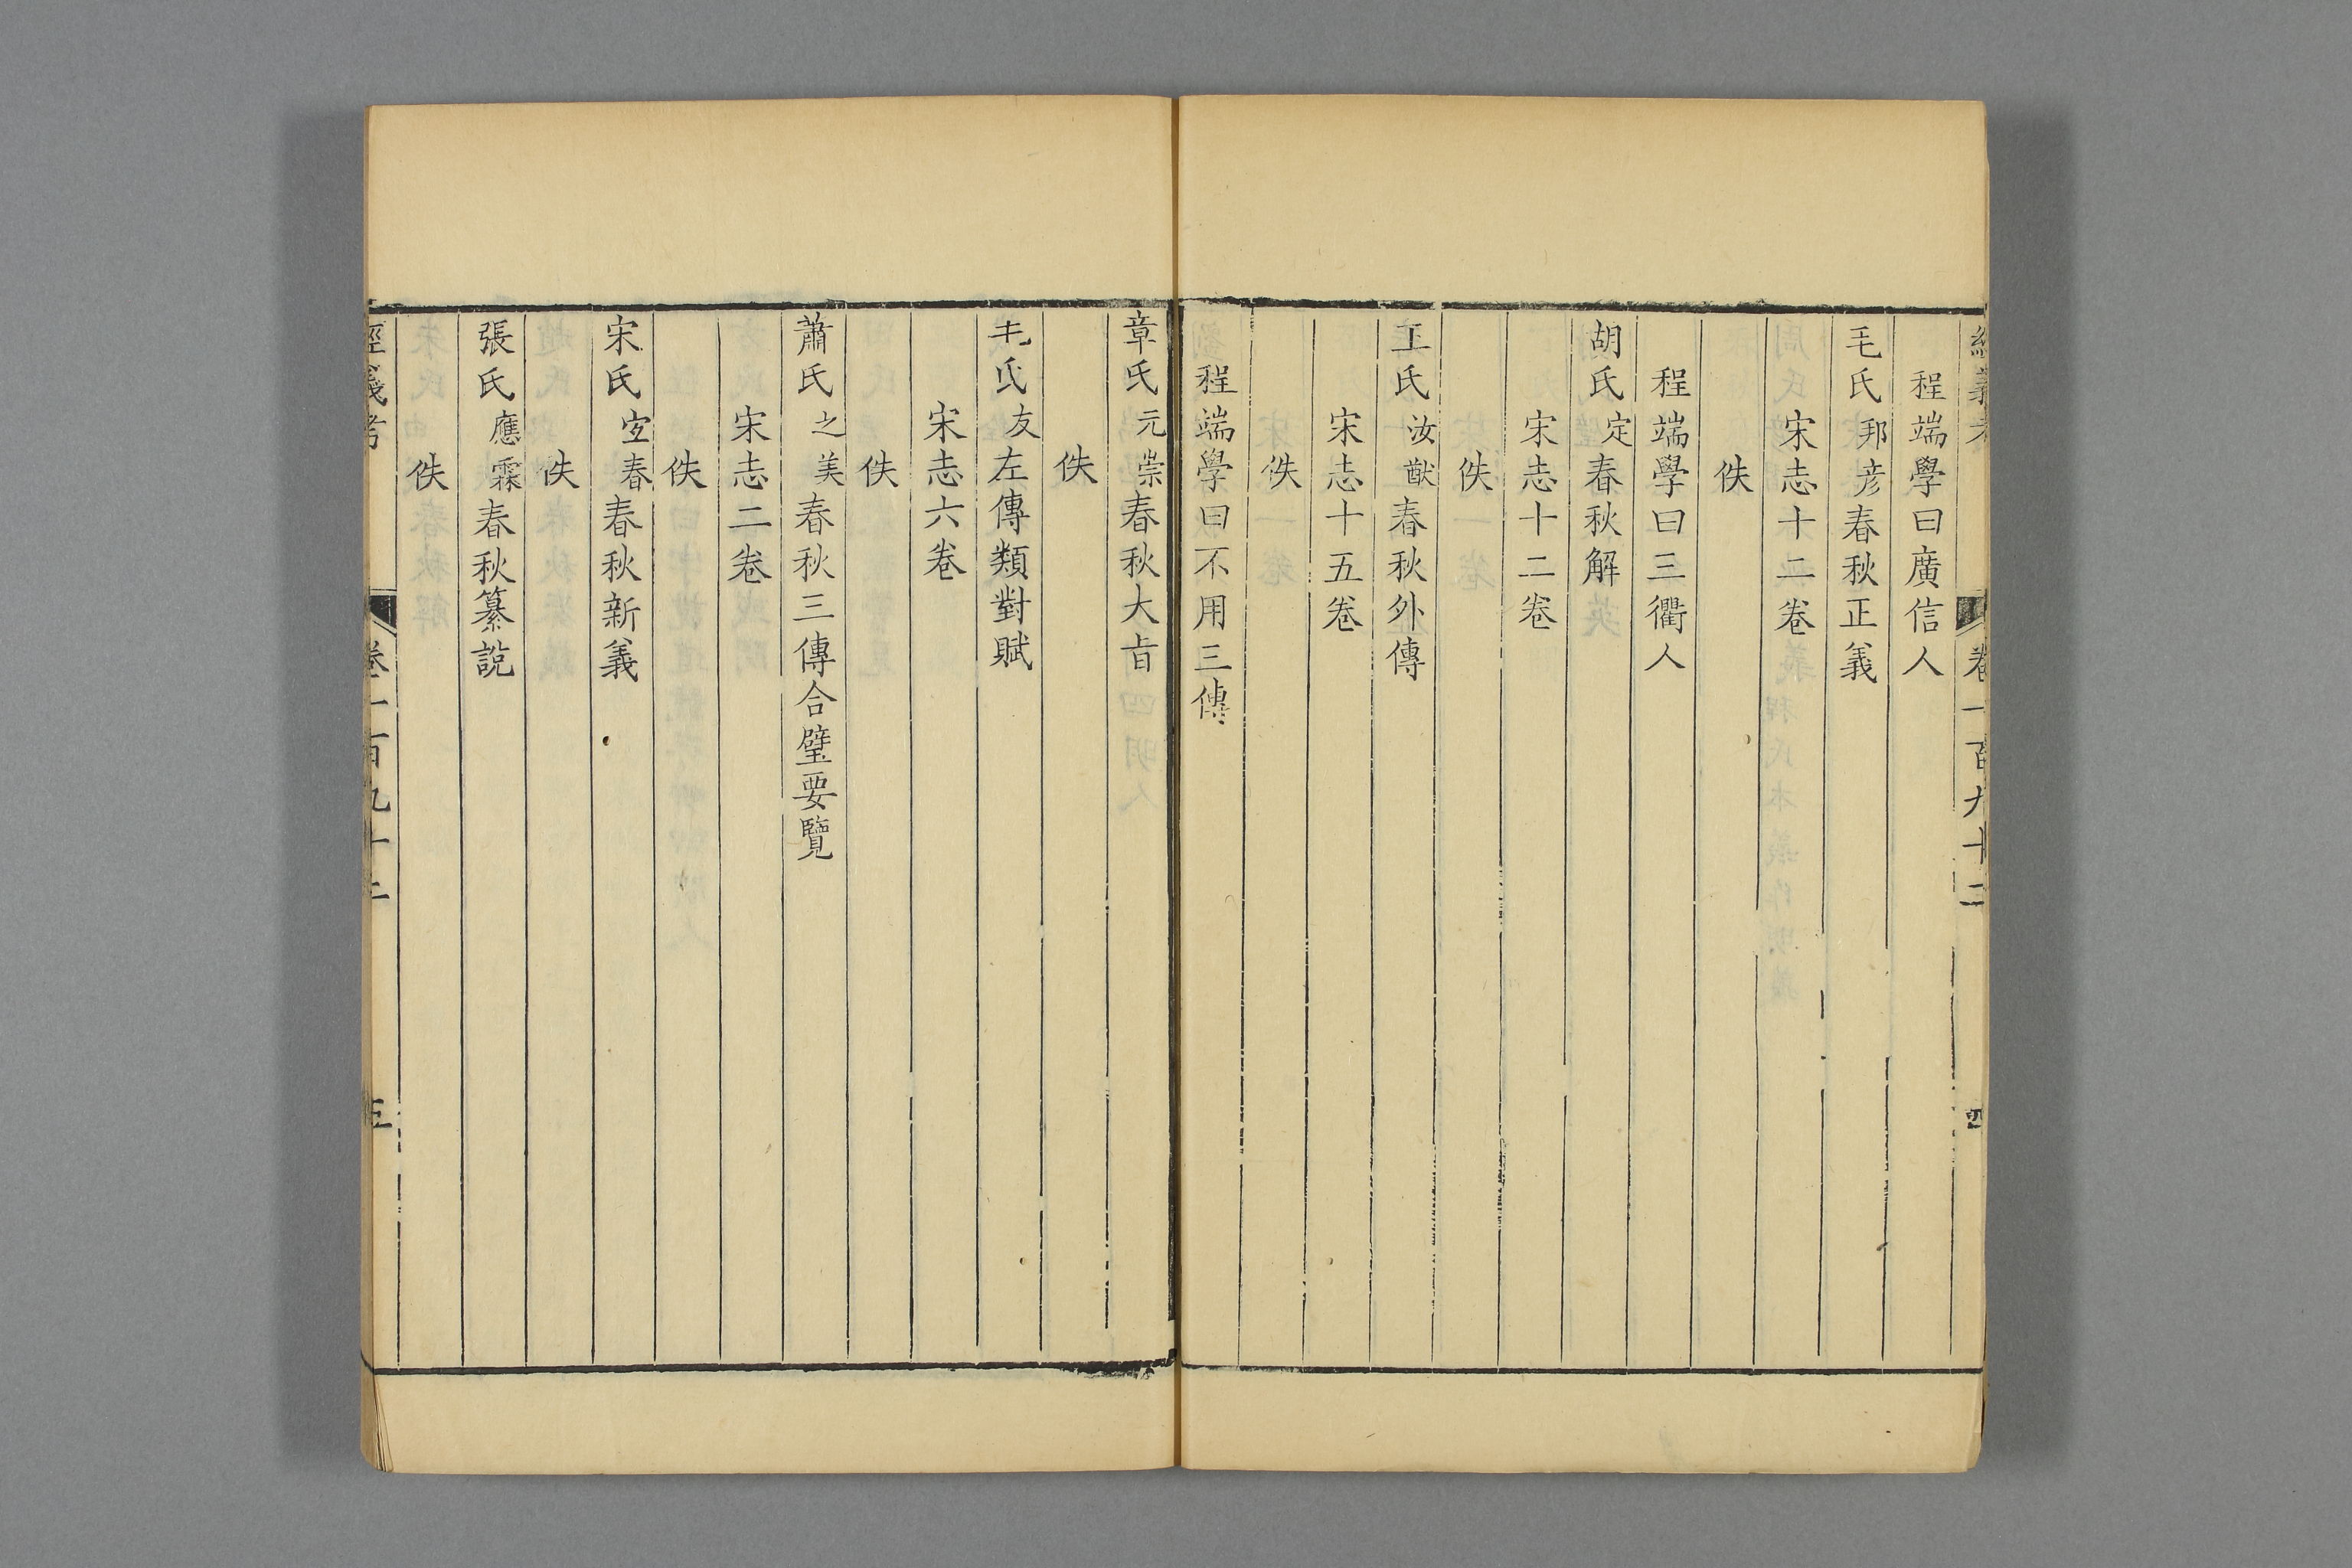 經義考 卷一百九十二 四
程端學曰廣信人
毛氏邦彦春秋正義
宋志十二卷
佚
程端學曰三衢人
胡氏定春秋解
宋志十二卷
佚
王氏汝猷春秋外傳
宋志十五卷
佚
程端學曰不用三傳
章氏元崇春秋大㫖
佚
毛氏友左傳類對賦
宋志六卷
佚
蕭氏之美春秋三傳合璧要覽
宋志二卷
佚
宋氏宜春春秋新義
佚
張氏應霖春秋纂説
佚
經義考 卷一百九十二 三